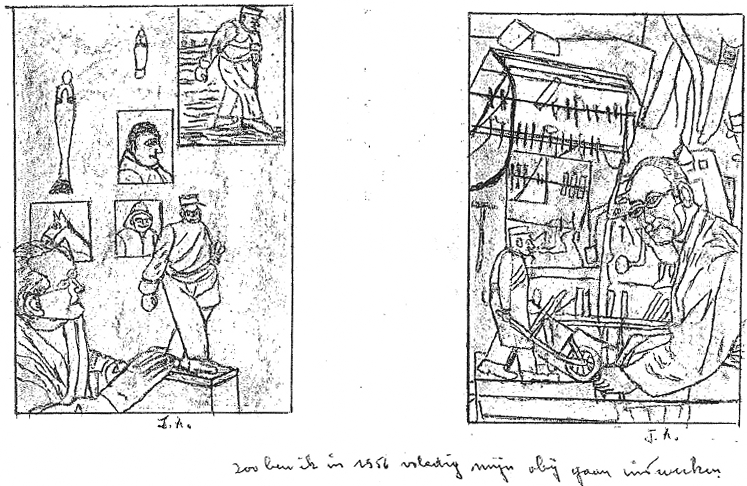 J. A.
J. A.
zoo ben ik in 1956 volledig mijn gaan